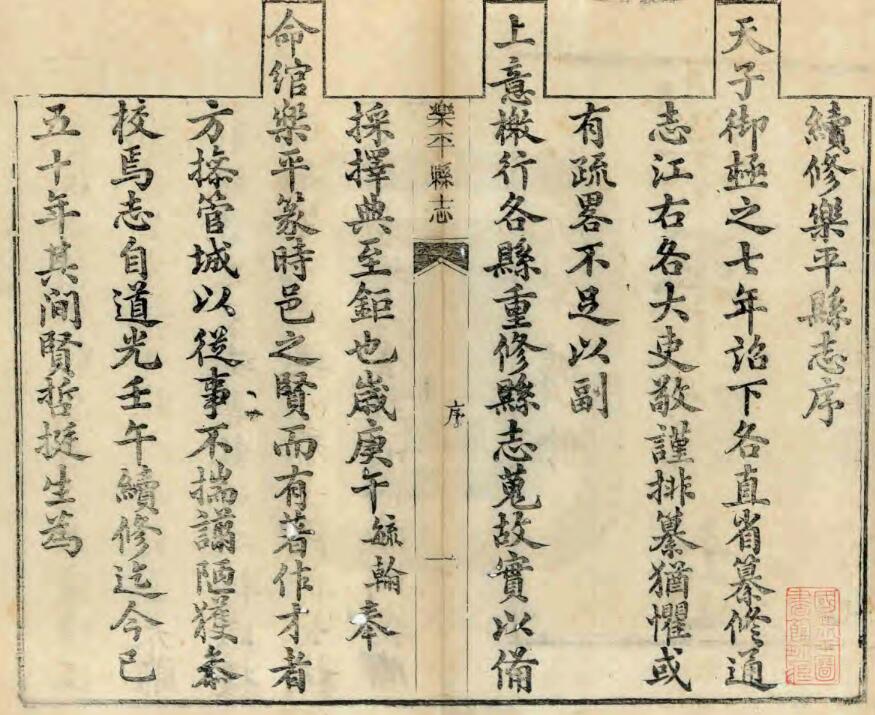 續修樂平縣志序
天子御極之七年詔下各直省纂修通
志江右各大吏敬謹排纂猶懼或
有疏畧不足以副
上意檄行各縣重修縣志蒐故實以備
樂平縣志
序
一
採擇典至鉅也歲庚午毓翰奉
命綰樂平篆時邑之賢而有著作才者
方搦管城以從事不揣譾陋獲叅
校焉志自道光壬午續修迄今已
五十年其间賢哲挺生為